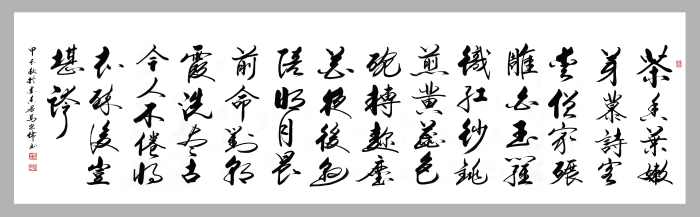 茶香葉嫩
芽慕詩客
愛僧家碾
雕白玉羅
織紅紗銚
煎黄蕊色
碗轉麴塵
花夜後邀
陪明月晨
前命對朝
霞洗盡古
今人不倦將
知醉後豈
堪誇
甲午秋於